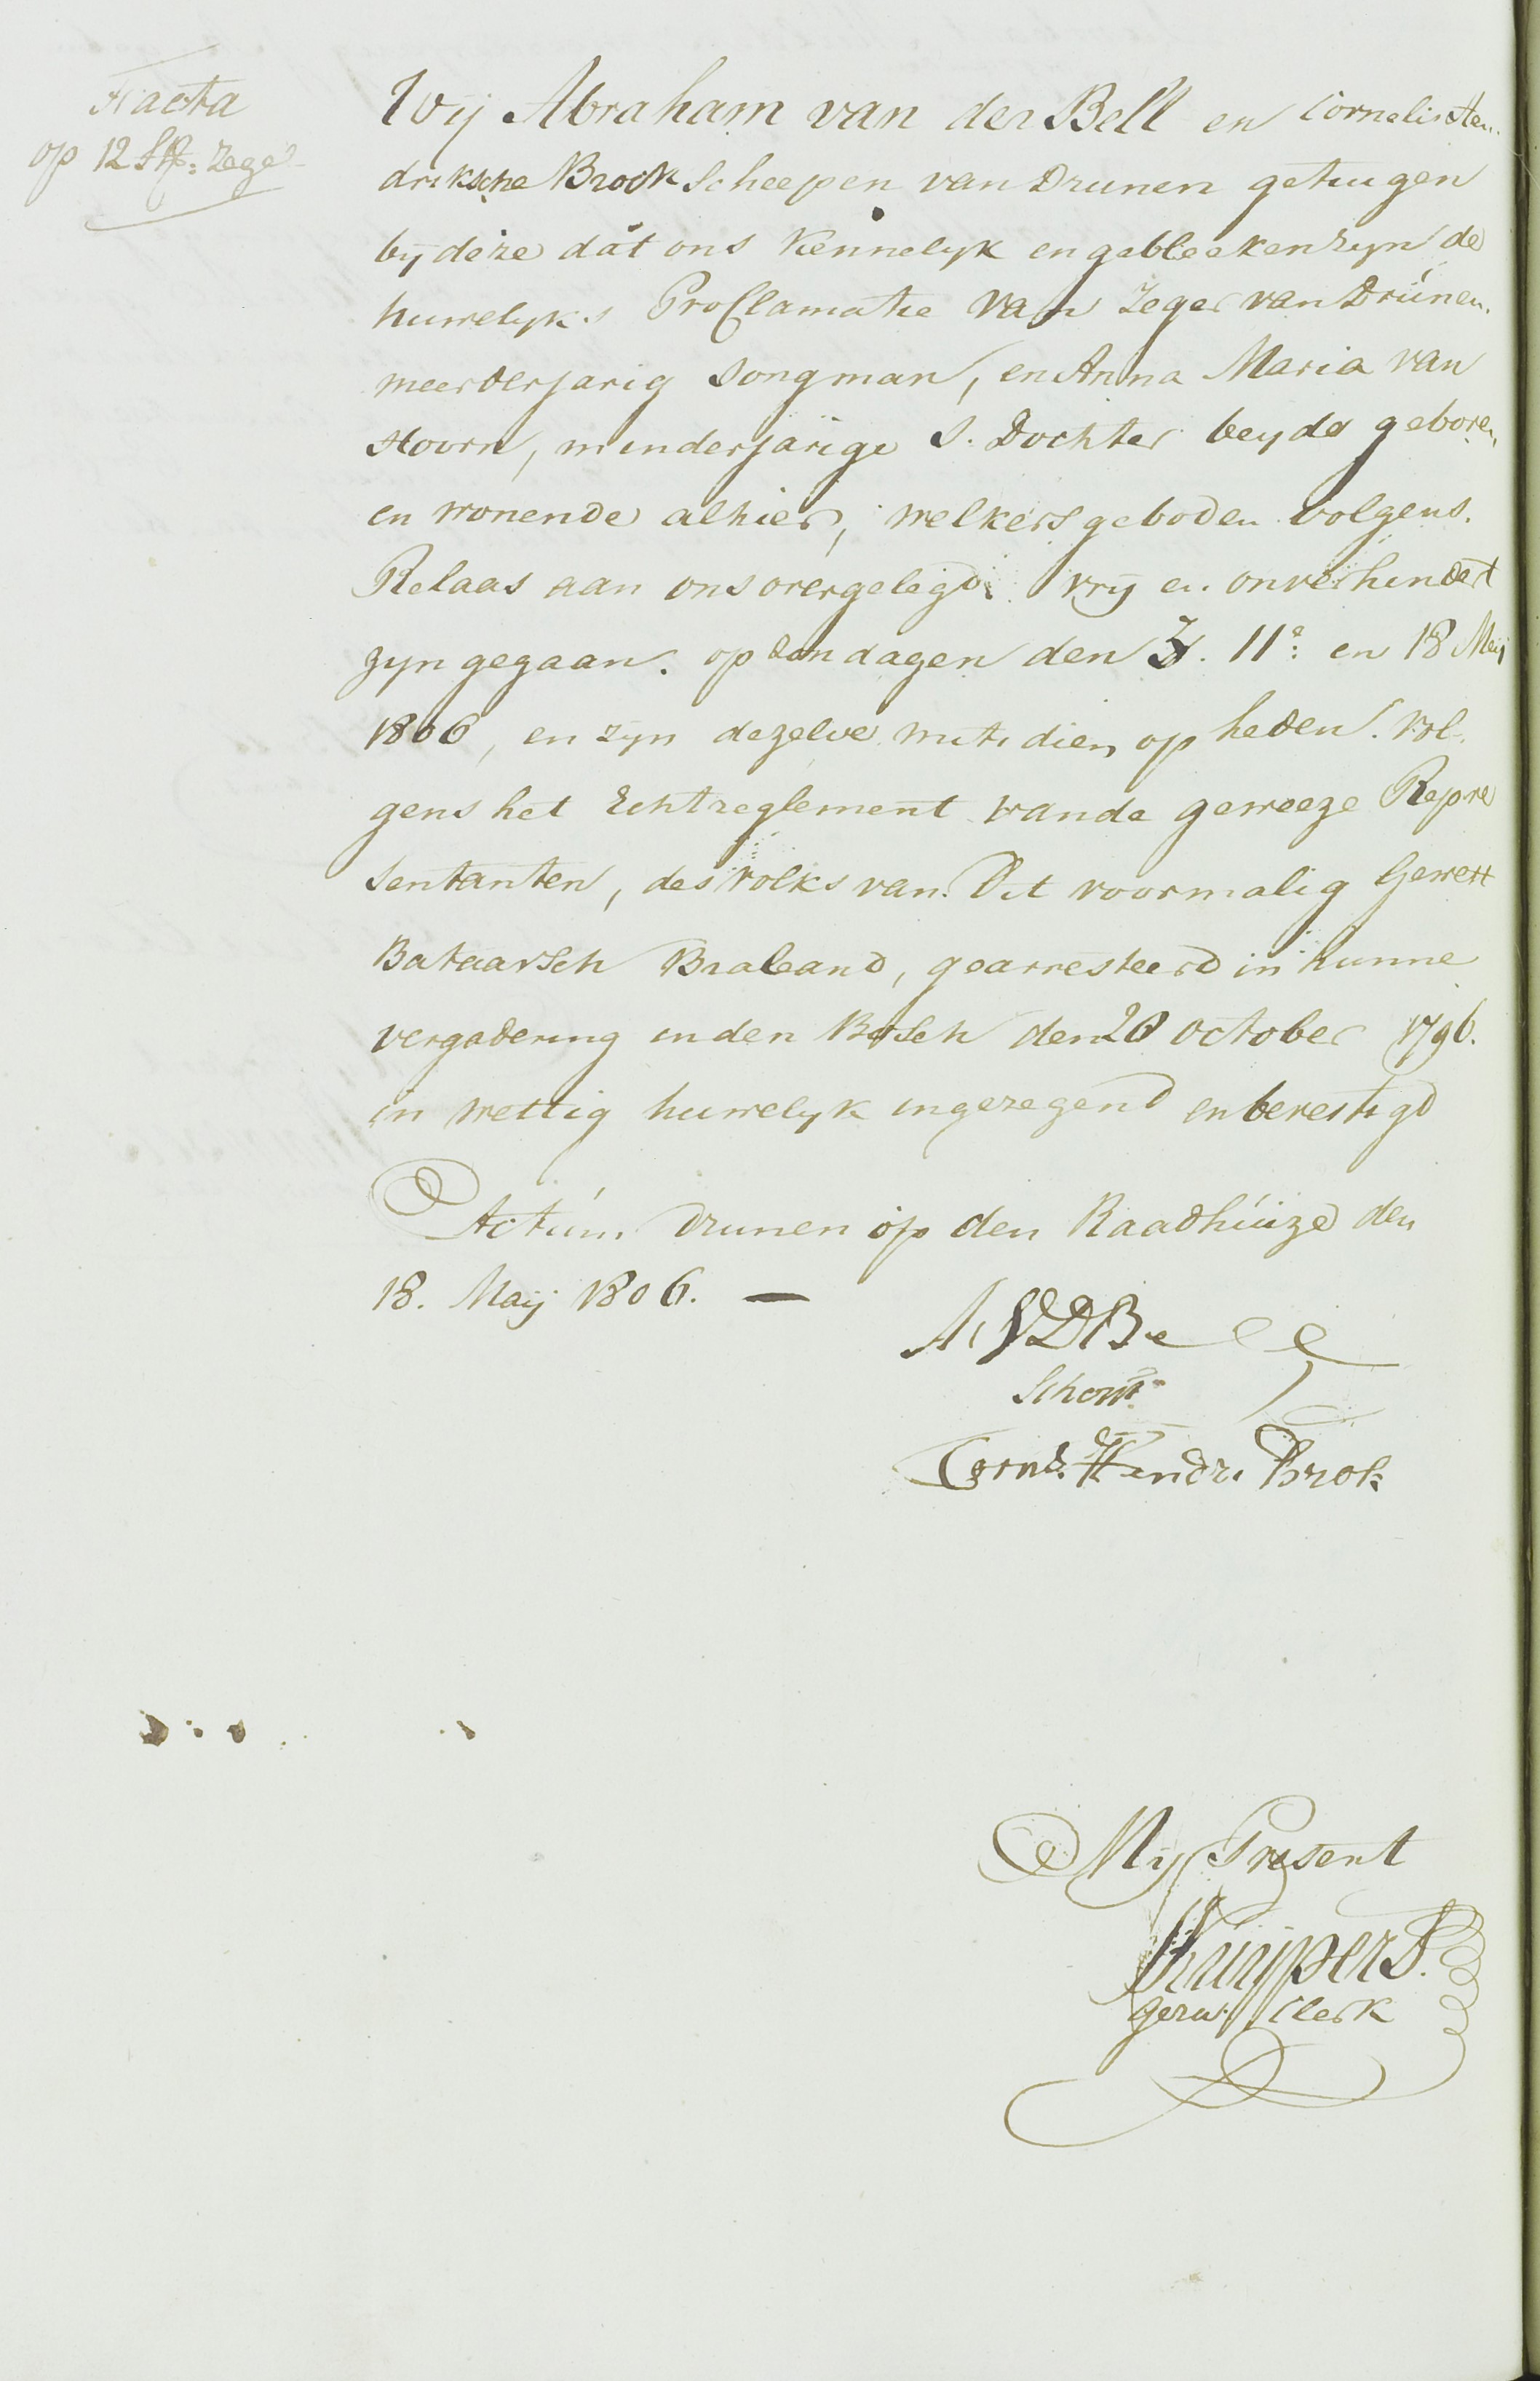 Fiacta
op 12 Stf: Zegel
Wij Abraham van der Bell en Cornelis Hen-
driksche Brock Scheepen van Drunen getuigen
bij deze dat ons kennelyk en gebleeken zyn de
huwelyks Proclamatie van Zeger van Drúnen.
meerderjarig Jongman, en Anna Maria van
Hoorn, minderjarige J. Dochter beyde geboren,
en wonende alhier, welkers geboden volgens.
Relaas aan ons overgelegd. vrij en onverhindert
zyn gegaan. op Zondagen den 4. 11e: en 18 Meij
1806, en zyn dezelve mits dien op heden. vol-
gens het Echtreglement vande geweeze Repre
sentanten, des volks van Dit voormalig Gewest
Bataavsch Braband, gearresteerd in hunne
vergadering in den Bosch den 20 October 1796.
in wettig huwelyk ingezegend en bevestigd
Actúm Drunen op den Raadhúize den
18. Maij 1806. —
A V D Bell
Corns. Hendr. Brok
Mij Present
Kuijpers.
gezw. Clerk